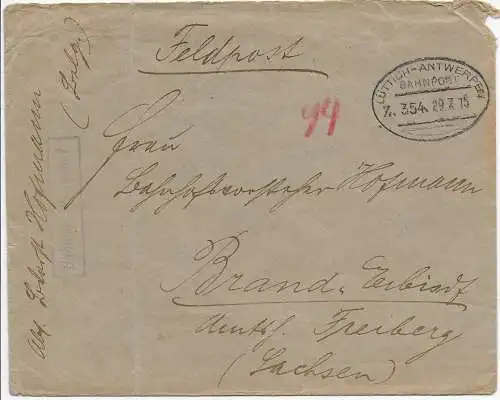 Feldpost
LÜTTICH-ANTWERPEN
BAHNPOST
Z. 354. 29.7.15
44
Frau
Bahnhofsvorsteher Hofmann
Brand-Erbisdf
Amtsh. Freiberg
(Sachsen)
Abs. Hofmann